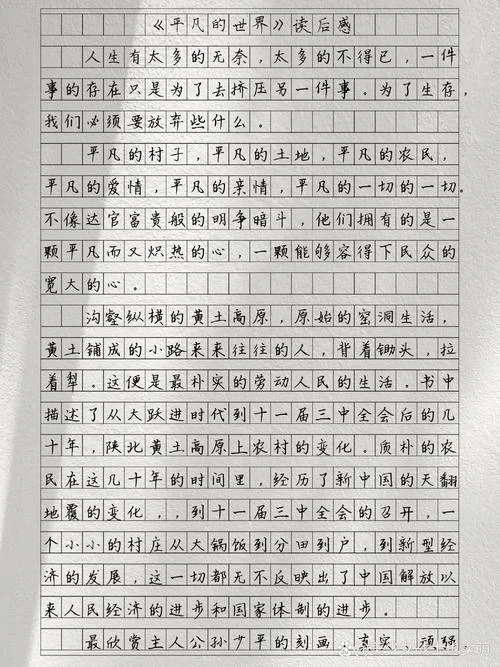 《平凡的世界》读后感
人生有太多的无奈，太多的不得已，一件
事的存在只是为了去挤压另一件事。为了生存，
我们必须要放弃些什么。
平凡的村子，平凡的土地，平凡的农民，
平凡的爱情，平凡的亲情，平凡的一切的一切。
不像达官富贵般的明争暗斗，他们拥有的是一
颗平凡而又炽热的心，一颗能够容得下民众的
宽大的心。
沟壑纵横的黄土高原，原始的窑洞生活，
黄土铺成的小路来来往往的人，背着锄头，拉
着犁。这便是最朴实的劳动人民的生活。书中
描述了从大跃进时代到十一届三中全会后的几
十年，陕北黄土高原上农村的变化。质朴的农
民在这几十年的时间里，经历了新中国的天翻
地覆的变化，，到十一届三中全会的召开，一
个小小的村庄从大锅饭到分田到户，到新型经
济的发展，这一切都无不反映出了中国解放以
来人民经济的进步和国家体制的进步。
最欣赏主人公孙少平的刻画，真实，顽强